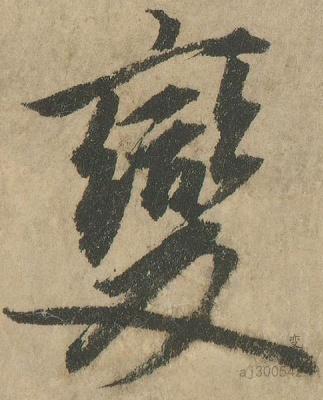 變
变
aj300542